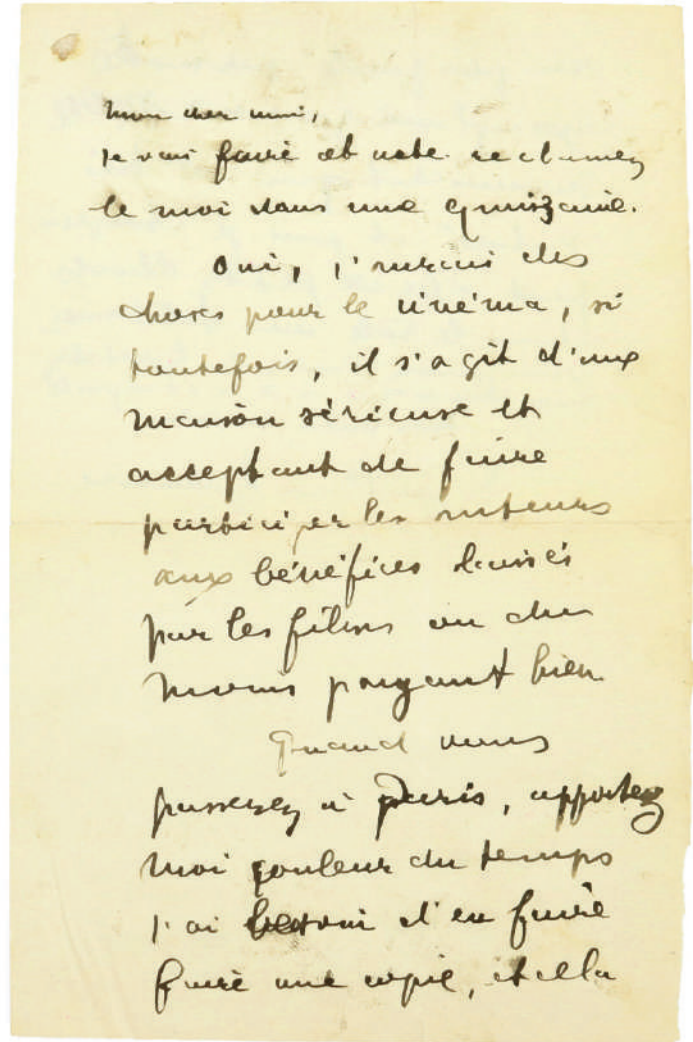 Mon cher ami,
je vais faire cet acte. reclamez
le moi dans une quinzaine.
Oui, j'aurais des
choses pour le cinéma, si
toutefois, il s'agit d'une
maison sérieuse et
acceptant de faire
participer les auteurs
aux bénéfices laissés
par les films ou du
moins payant bien.
Quand vous
passerez à Paris, apportez
moi couleur du temps
j'ai besoin d'en faire
faire une copie, et la